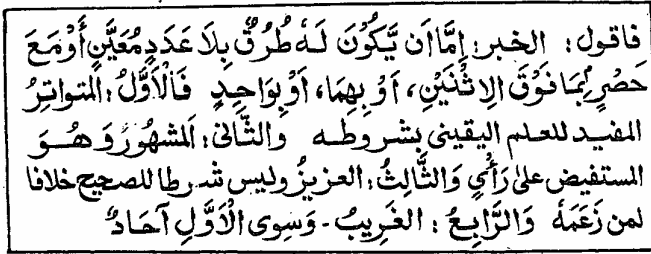 فاقول: الخبر: اِمَّا اَن يَّكُوْنَ لَهٗ طُرُقٌ بِلَا عَدَدٍ مُعَيَّنٍ أَوْ مَعَ
حَصْرٍ بِمَا فَوْقَ الِاثْنَيْنِ، اَوْ بِهِمَا، اَوْ بِوَاحِدٍ فَالْاَوَّلُ: المتواترُ
المفيد للعلم اليقينى بشروطه والثّانى: اَلمشهُورُ وَهُوَ
المستفيض علىٰ رَأْىٍ وَالثَّالِثُ: العزيزُ وليس شرطا للصحيح خلافا
لمن زَعَمَهٗ وَالرَّابِعُ: الغَرِيبُ - وَسِوى الْاَوَّلِ آحَادٌ